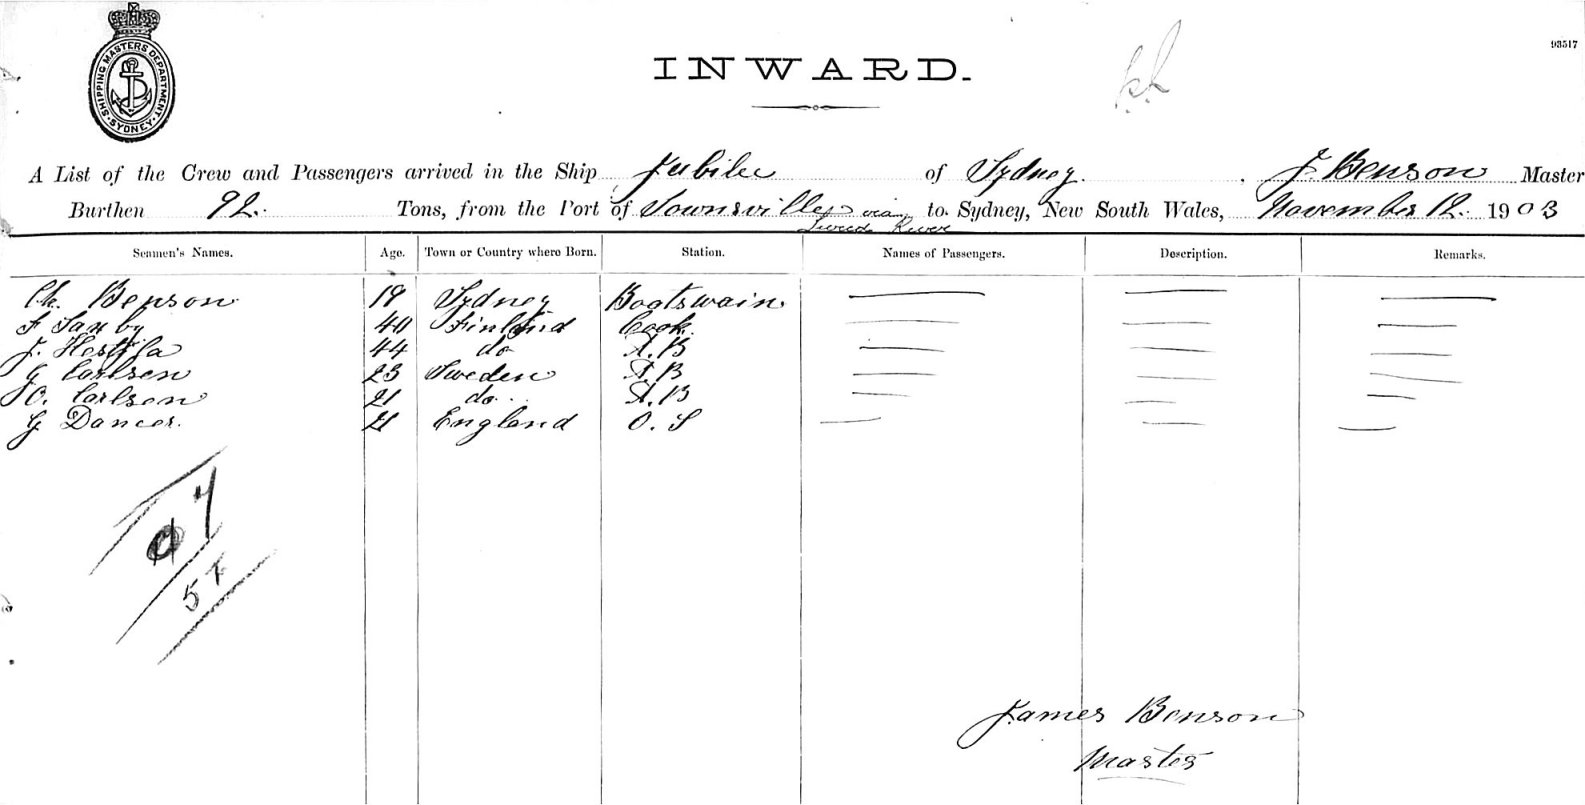 SHIPPING MASTERS DEPARTMENT. SYDNEY.
93517
INWARD.
A List of the Crew and Passengers arrived in the Ship Jubilee of Sydney. J. Benson Master
Burthen 92. Tons, from the Port of Townsville via to Sydney, New South Wales, November 12. 1903
Tweed River
Seamen's Names. Age. Town or Country where Born. Station. Names of Passengers. Description. Remarks.
Ch. Benson 19 Sydney Boatswain.
F Saxby 40 Finland Cook.
J. 44 do A.B
G Carlsen 23 Sweden A.B
O. Carlson 21 do. A.B
G Dancer. 21 England O.S
7
57
James Benson
Master